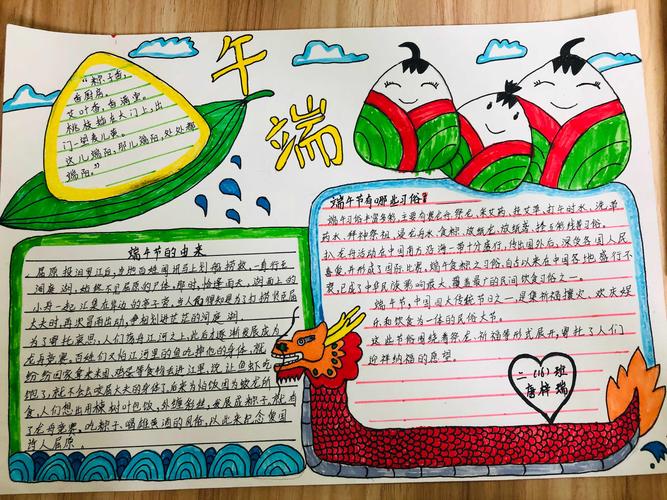 端
午
"粽子香,
香厨房。
艾叶香,香满堂。
桃枝插在大门上,出
门一望麦儿黄。
这儿端阳,那儿端阳,处处都
端阳。"
端午节的由来
屈原投汨罗江后,当地百姓闻讯马上划船捞救,一直行至
洞庭湖,始终不见屈原的尸体,那时,恰逢雨天,湖面上的
小舟一起汇集在岸边的亭子旁,当人们得知是为了打捞贤臣屈
大夫时,再次冒雨出动,争相划进茫茫的洞庭湖
为了寄托哀思,人们荡舟江河之上,此后才逐渐发展成为
龙舟竞赛,百姓们又怕江河里的鱼吃掉他的身体,就
纷纷回家拿来米团
饱了,就不会去咬屈大夫的身体了,后来为怕饭团为蛟龙所
食,人们想出用楝树叶包饭,外缠彩丝,发展成粽子,就有
了龙舟竞赛、吃粽子、喝雄黄酒的风俗,以此来纪念爱国
诗人屈原
端午节有哪些习俗
端午习俗
药水、拜神祭祖、浸龙舟水、食粽、放纸龙、放纸鸢、
扒龙舟活动在中国南方沿海一带十分盛行,传出国外后,深受各国人民
喜爱并形成了国际比赛,端午食粽之习俗,自古以来在中国各地盛行不
衰,已成了中华民族
端午节,中国四大传统节日之一,是集祈福攘灾、欢庆娱
乐和饮食为一体的民俗大节
这些节俗围绕着祭龙、祈福等形式展开,寄托了人们
迎祥纳福的愿望
一(16)班
唐梓瑞